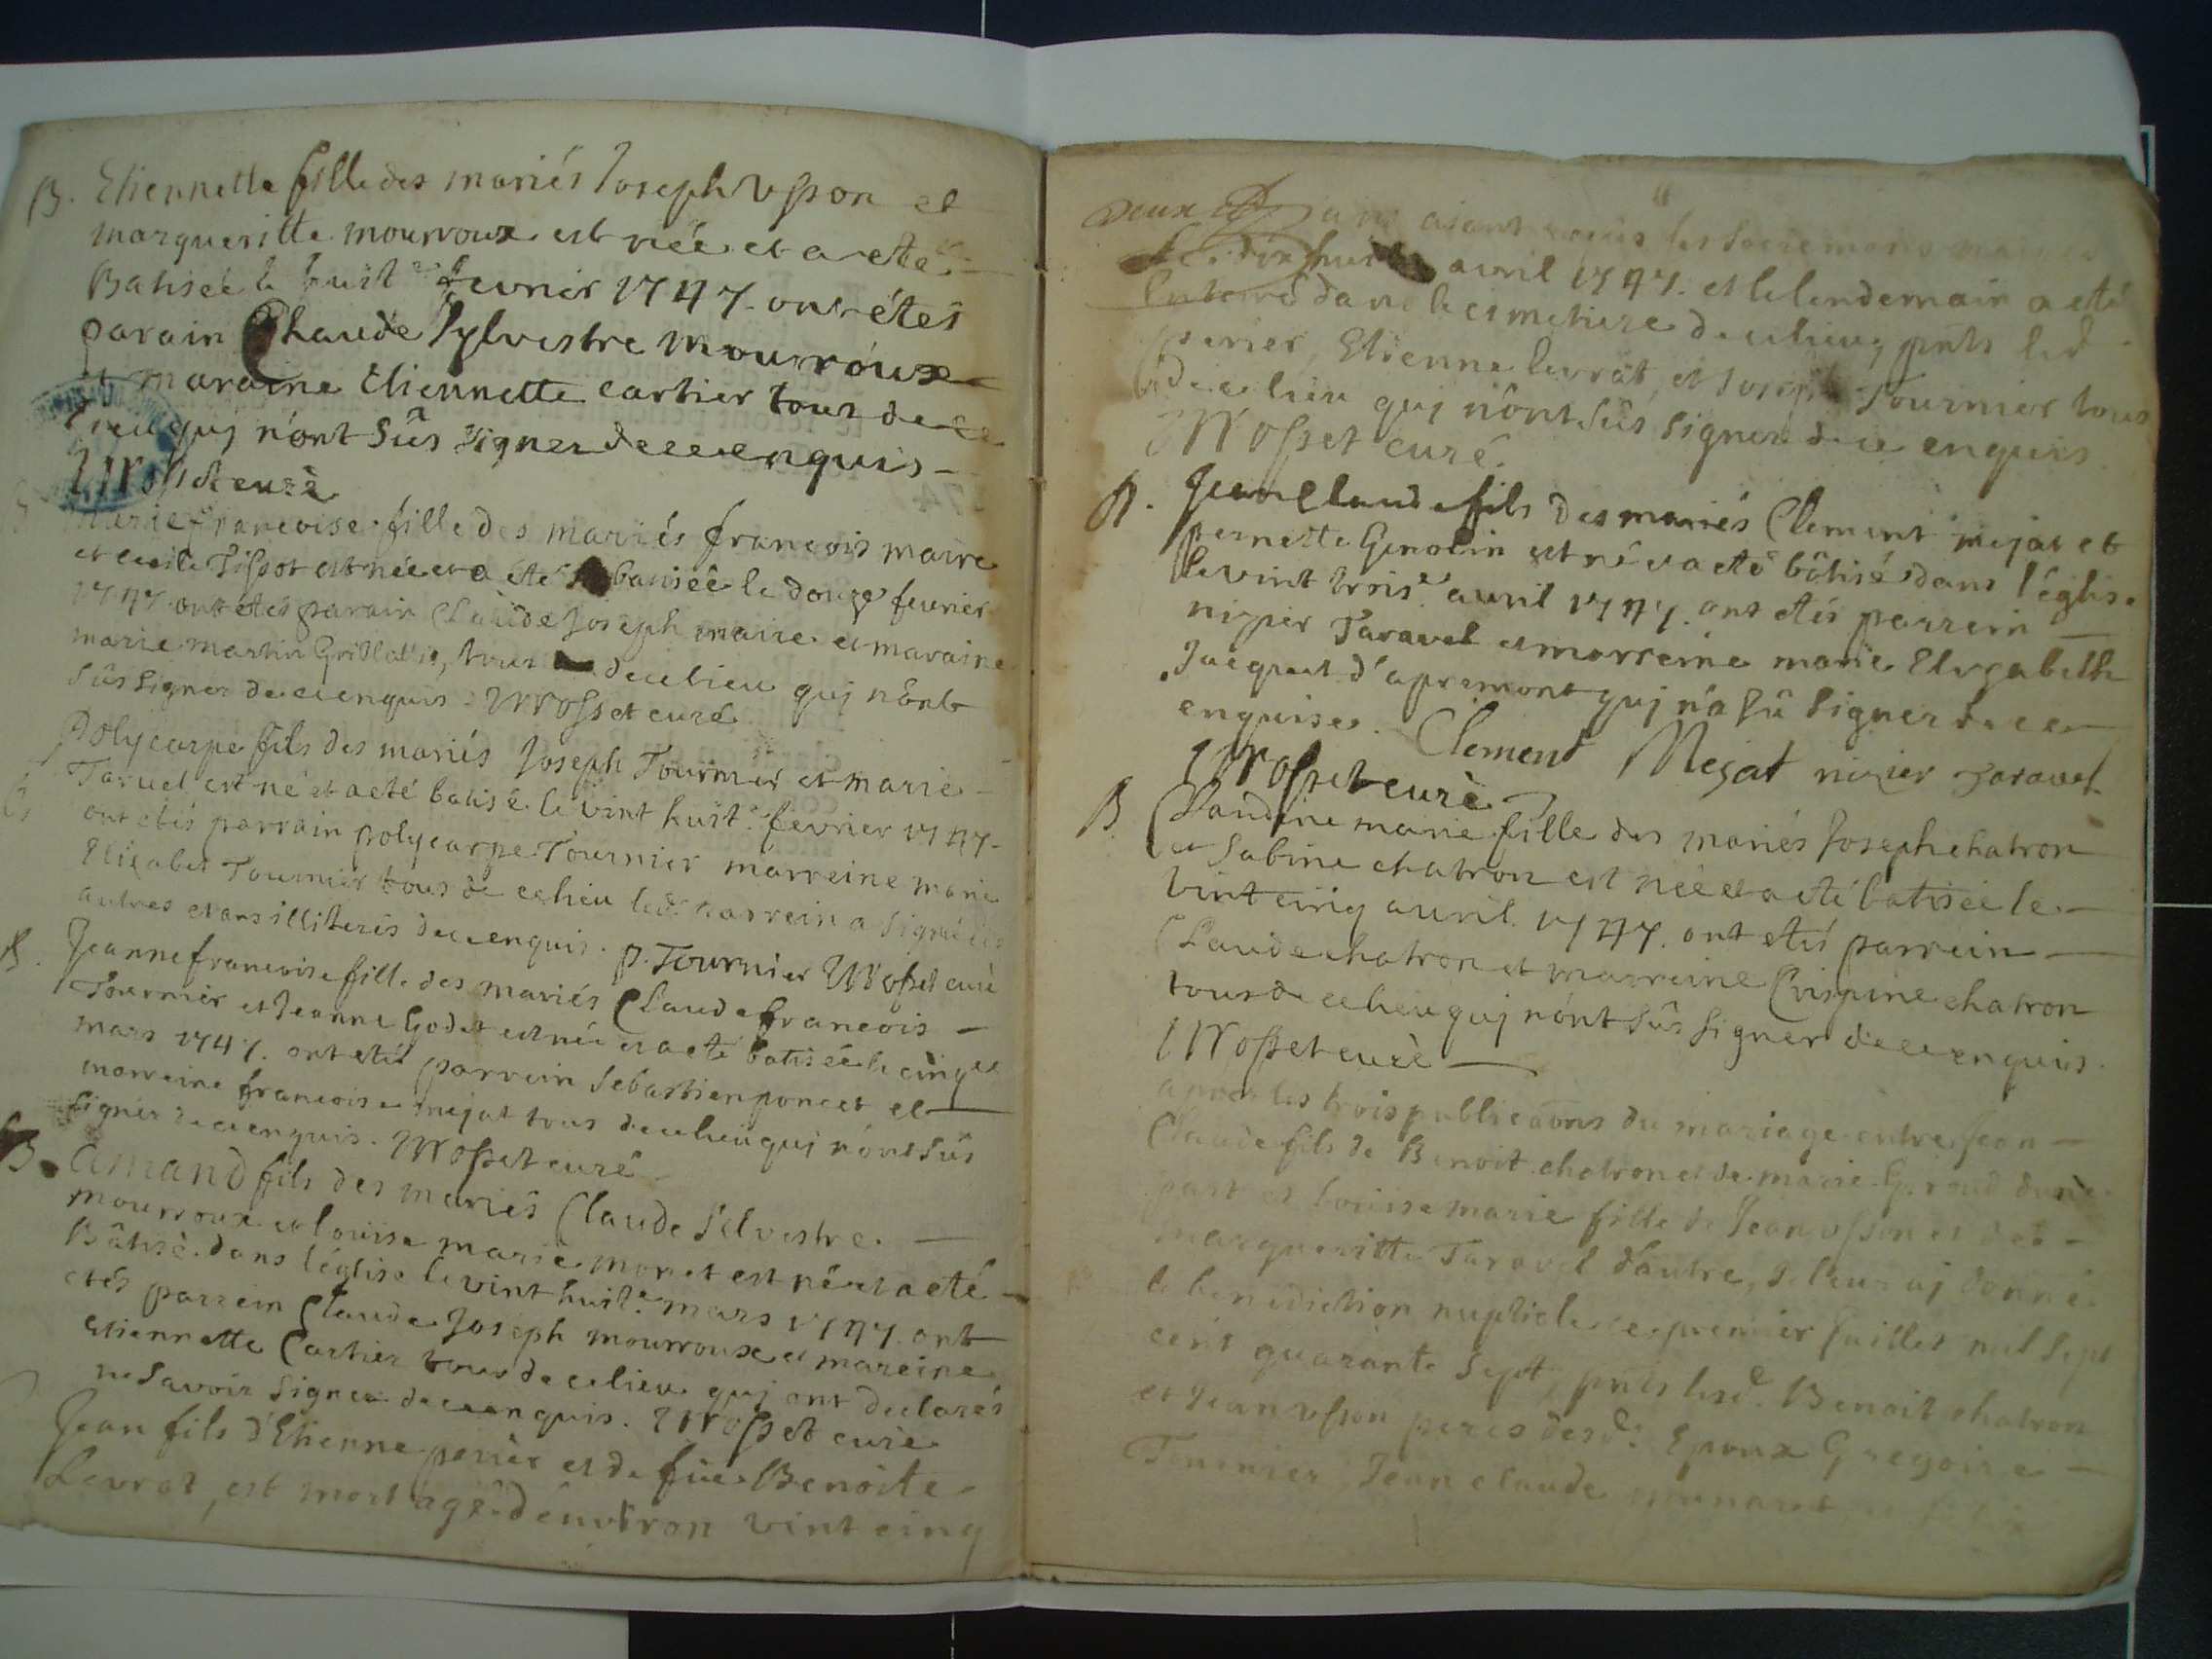 B. Etiennette fille des mariés Joseph Usson et
margueritte mourroux est née et a eté
Batisée le huit.e fevrier 1747. ont étés
parain Claude Sylvestre Mourroux
et maraine Etiennette cartier tous de ce
lieu quj n'ont sûs signer de ce enquis
Mosset curé
Marie francoise fille des mariés francois maire
et cecile Tissot est née et a eté batisée le douze fevrier
1747 ont étés parain Claude Joseph maire et maraine
marie martin Grillat, tous de ce lieu quj n'ont
sûs signer de ce enquis. Mosset curé
Polycarpe fils des mariés Joseph Tournier et marie
Taruel est né et a eté batisé le vint huit.e fevrier 1747
ont étés parrain polycarpe Tournier marreine marie
Elizabet Tournier tous de ce lieu led. parrein a signé les
autres etans illiterés de ce enquis. p. Tournier Mosset curé
B. Jeanne francoise fille des mariés Claude francois
Tournier et Jeanne Godet est née et a eté batisée le cinq.e
mars 1747. ont étés parrein Sebastien poncet et
marreine francoise mejat tous de ce lieu quj n'ont sûs
signer de ce enquis. Mosset curé
B. Amand fils des mariés Claude Silvestre
mourroux et louise marie monet est né et a eté
Bâtisé dans l'église le vint huit.e mars 1747. ont
étés parrein Claude Joseph mourroux et mareine
Etiennette Cartier tous de ce lieu quj ont declarés
ne savoir signer de ce enquis. Mosset curé
Jean fils d'Etienne perier et de füe Benoite
Levrat, est mort agé d'environ vint cinq
deux ans aiant reçus les sacremens
le dix huit avril 1747. et le lendemain a eté
Enterré dans le cimetiere de ce lieu, pnts led
perier, Etienne levrat, et Joseph Tournier tous
de ce lieu quj n'ont sûs signer de ce enquis.
Mosset curé.
B. Jean Claude fils des mariés Clement mejat et
pernette Genolin est né et a eté bâtisé dans l'église
le vint trois.e avril 1747. ont étés parrein
nizier Taravel et marreine marie Elizabeth
Jacquet d'apremont quj n'a sû signer de ce
enquise. Clement Megat nizier Taravel
Mosset curé
B. Claudine marie fille des mariés Joseph chatron
et Sabine chatron est née et a eté batisée le
vint cinq avril 1747. ont étés parrein
Claude chatron et marreine Crispine chatron
tous de ce lieu quj n'ont sûs signer de ce enquis.
Mosset curé
apres les trois publicaons du mariage entre Jean
Claude fils de Benoit chatron et de marie Giroud d'une
part et louise marie fille de Jean Usson et de
margueritte Taravel d'autre, Je leur aj donné
la benediction nuptiale le premier Juillet mil sept
cent quarante sept, pnts lesd. Benoit chatron
et Jean Usson peres desd. Epoux Gregoire
Tournier, Jean claude